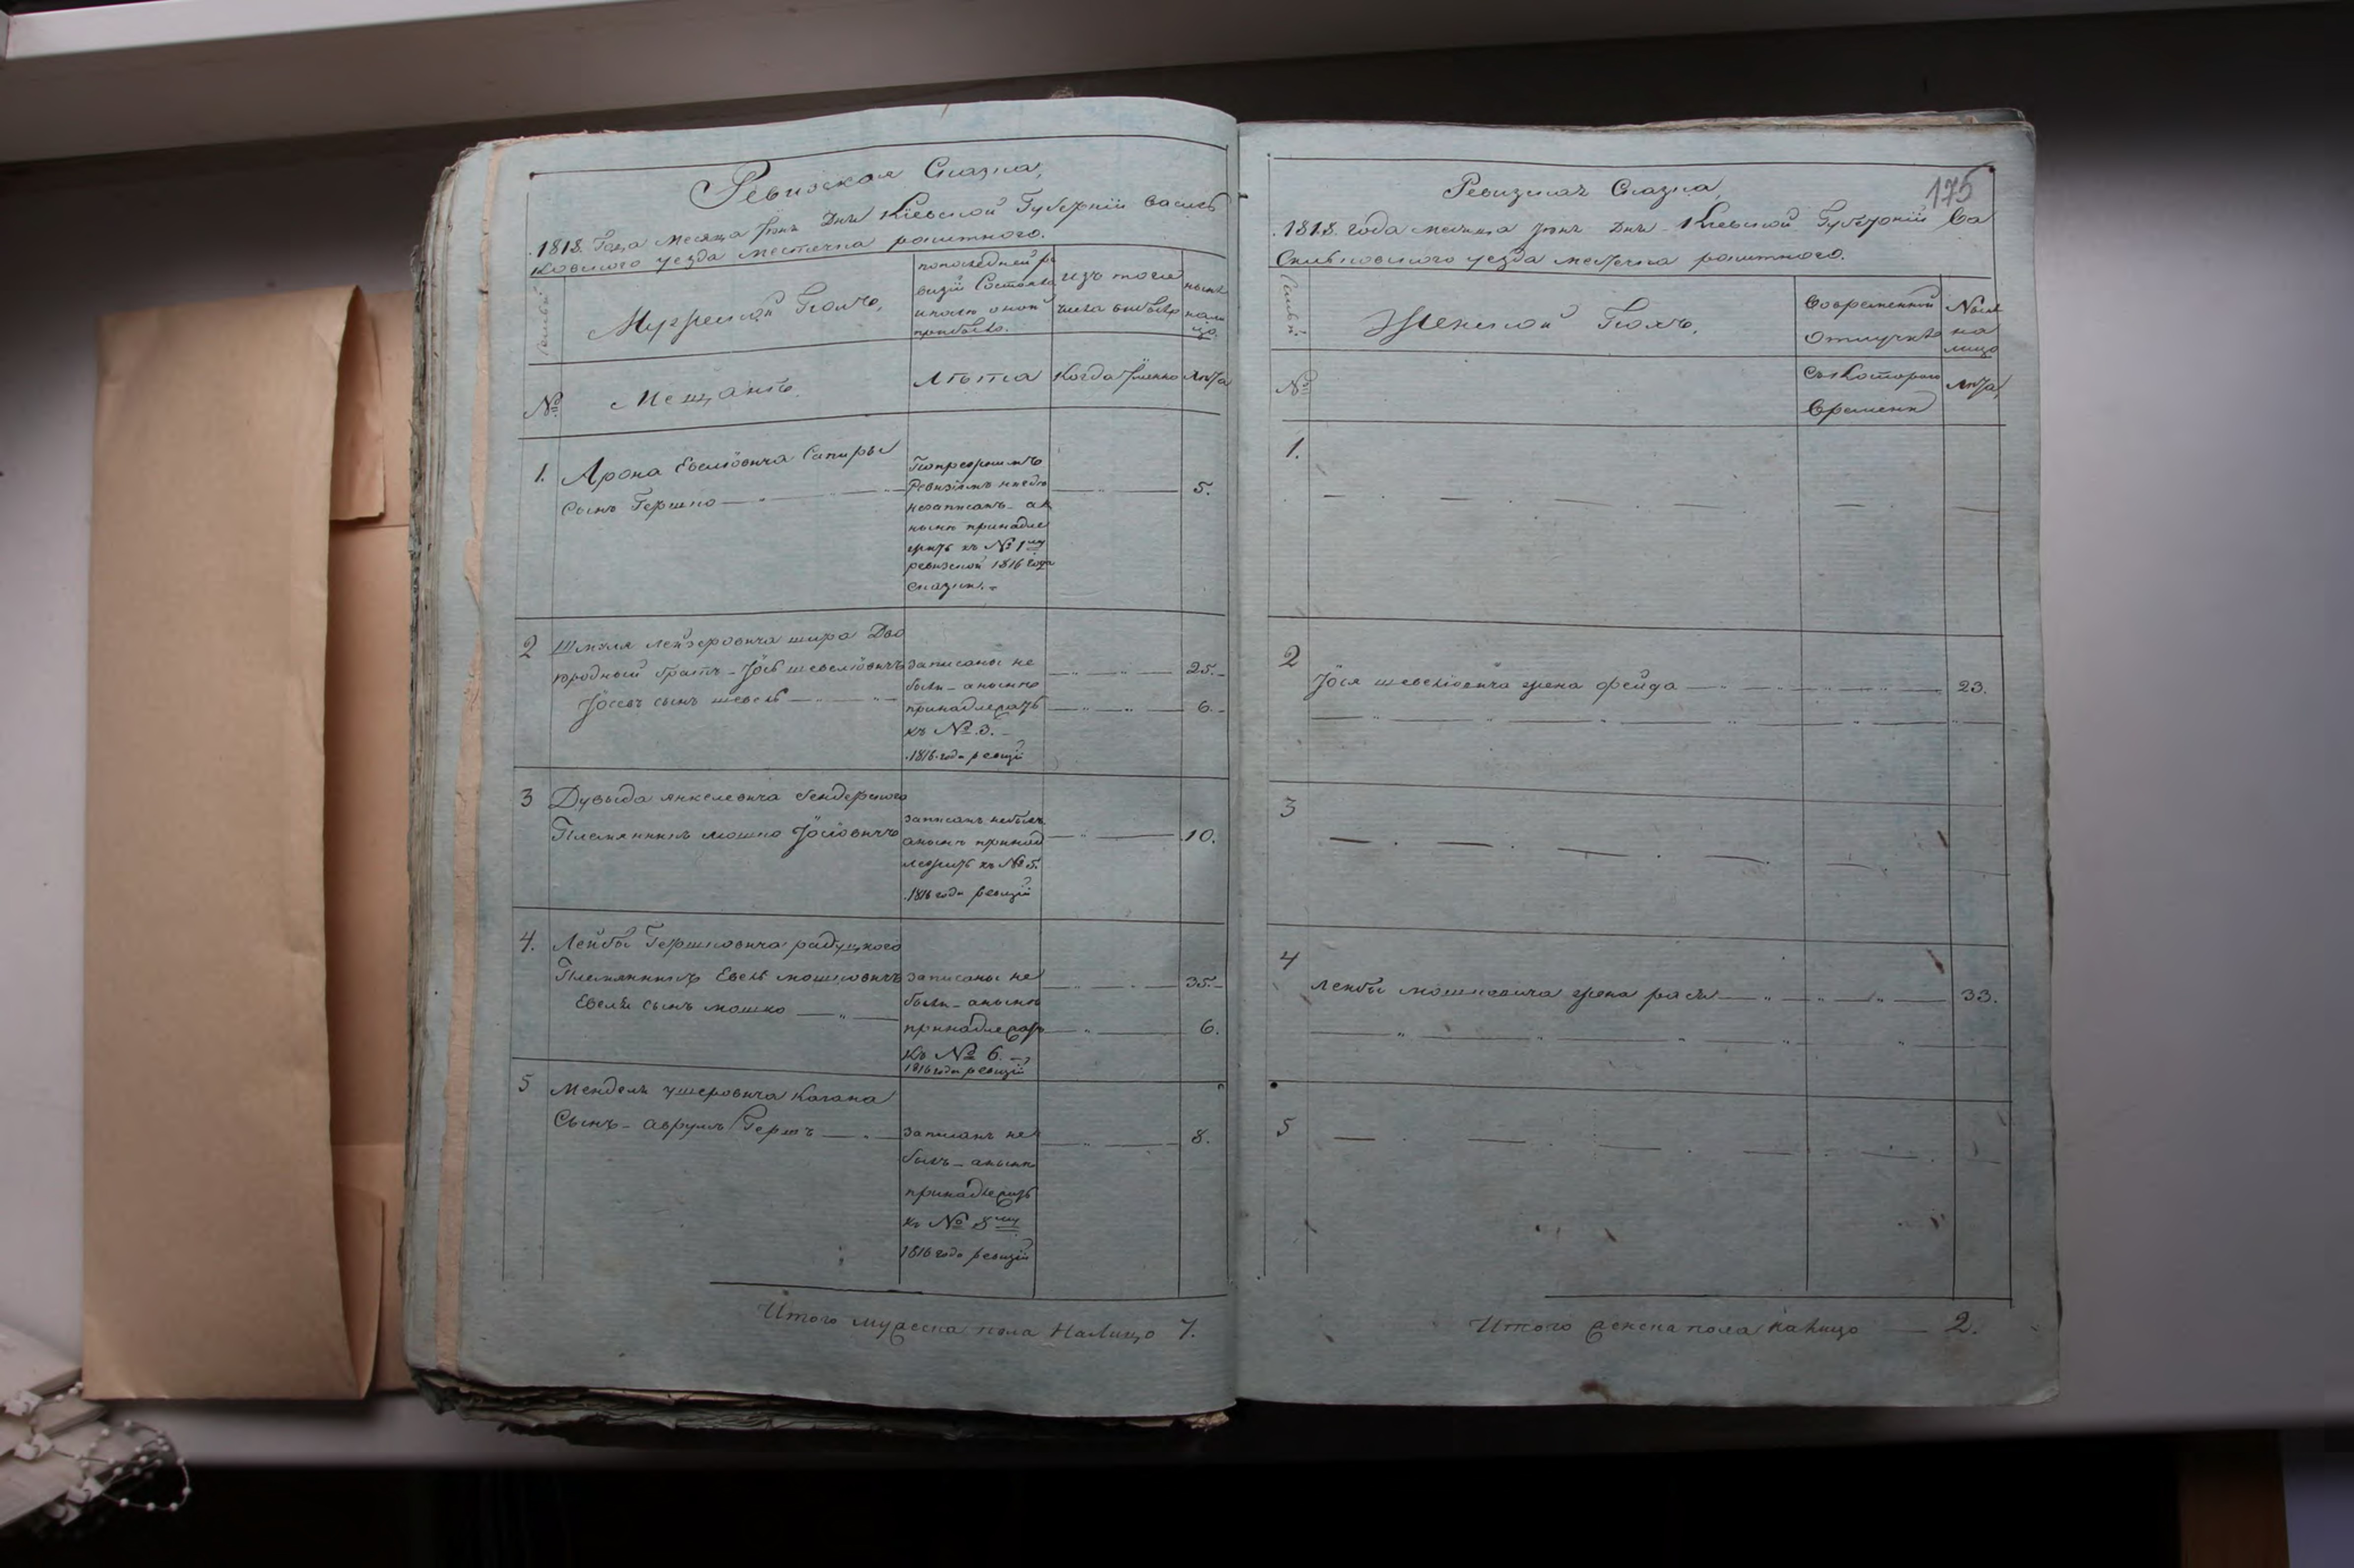 Ревизская Сказка,
1818. Года месяца Іюнъ Днъ Кіевской Губерніи Василь
ковского уезда местечка ракитного.
Семьи
Мужеской Полъ,
попоследней ре
визіи Состояло
ипосле оной
прибыло.
изъ того
числа выбыло
ныне
нали
цо.
№
Мещанъ
Лѣта
Когда Іменно
Лѣта
1.
Арона Евелiовича Сапиры
Сынъ Гершко
Попрежнимъ
Ревизіямъ нигде
незаписанъ - а
ныне принадле
житъ къ № 1му
ревизской 1816 года
сказки.
5.
2
Шмуля лейзеровича шира Дво
юродный братъ - Іось шевелiовичъ
Іосевъ сынъ шевель
записаны не
были - аныне
принадлежатъ
къ № 3.
1816 года ревизіи
25.
6.
3
Дувыда янкелевича бендерского
Племянникъ мошко Іосiовичъ
записанъ небылъ
аныне принад
лежитъ къ № 5.
1816 года ревизіи
10.
4.
Лейбы Гершковича радуцкого
Племянникъ Евель мошковичъ
Евеля сынъ мошко
записаны не
были - аныне
принадлежатъ
къ № 6.
1816 года ревизіи
35.
6.
5
Мендель ушеровича Кагана
Сынъ - аврумъ Гершъ
записанъ не
былъ - аныне
принадлежитъ
къ № 8му
1816 года ревизіи
8.
Итого мужеска пола Налицо 7.
175
Ревизская Сказка,
1818. года месяца Іюнъ Днъ Кіевской Губерніи Ва
сильковского уезда местечка ракитного.
Семьи
Женской Полъ,
Вовременной
Отлучке
Ныне
на
лицо
№
Съ Которого
Времени
Лѣта
1.
2
Іося шевелiовича жена фейга
23.
3
4
лейбы мошковича жена рася
33.
5
Итого женска пола налицо 2.